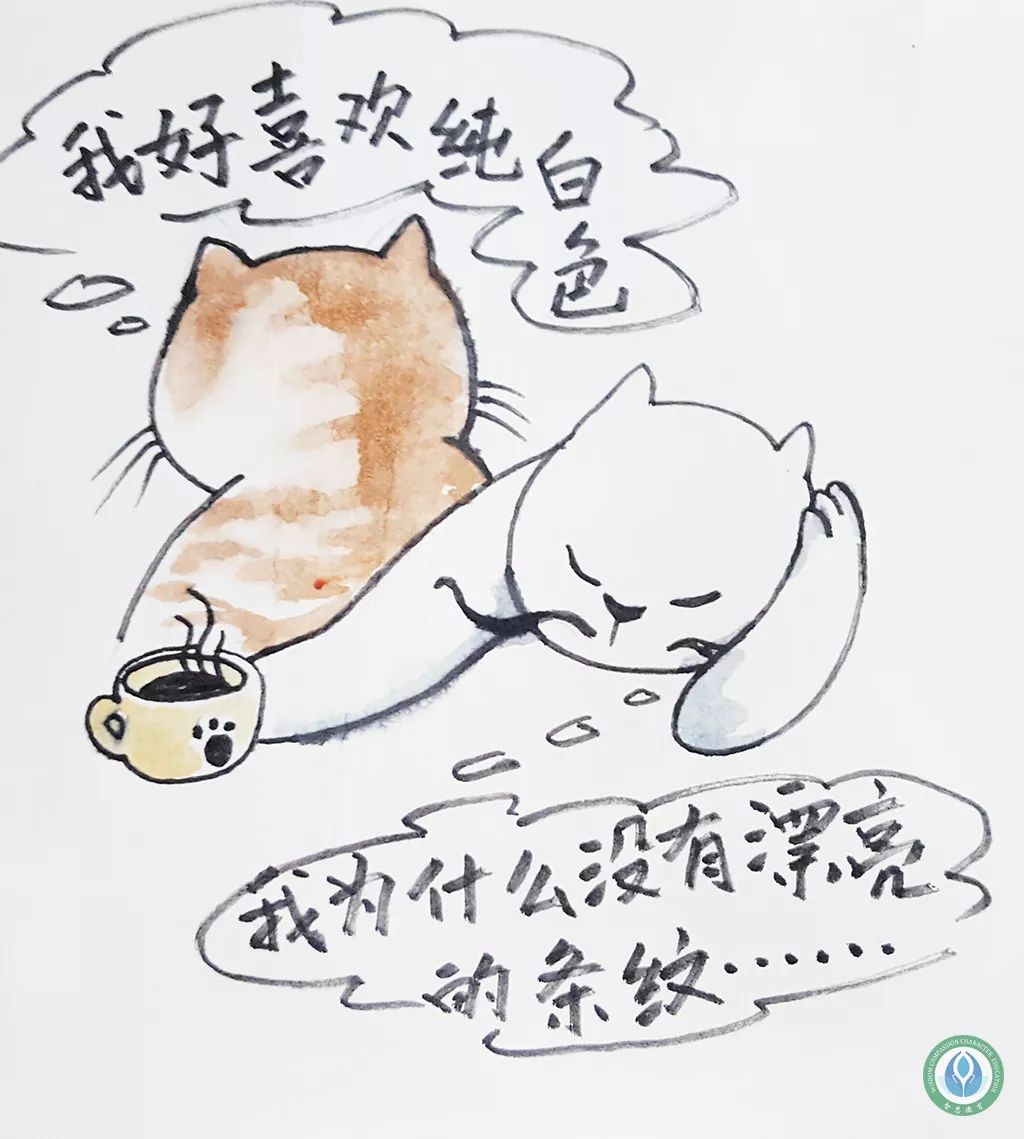 我好喜欢纯白
色
我为什么没有漂亮
的条纹······
WISDOM COMPASSION CHARACTER EDUCATION
智悲德育